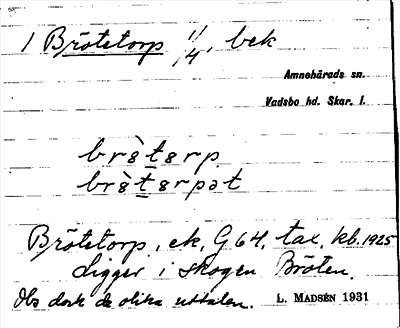 1 Brötetorp 1/4, bek
Amnehärads sn.
Vadsbo hd. Skar. l.
brötetorp, ek, G 64, tax. kb. 1925
Ligger i skogen Bröten.
Obs dock de olika uttalen. L. MADSÉN 1931